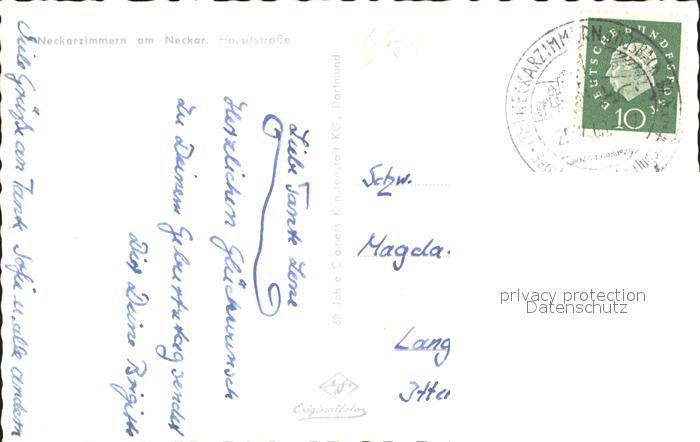 Neckarzimmern am Neckar, Hauptstraße
Liebe Tante Lone
Herzlichen Glückwunsch
zu Deinem Geburtstag sendet
Dir Deine Brigitte
Liebe Grüße an Tante Sofie u. alle andern
60 Jahre Cramers Kunstanstalt KG, Dortmund
Schw.
Magda
Lang
Originalfoto
NECKARZIMMERN
DEUTSCHE BUNDESPOST
10
privacy protection
Datenschutz